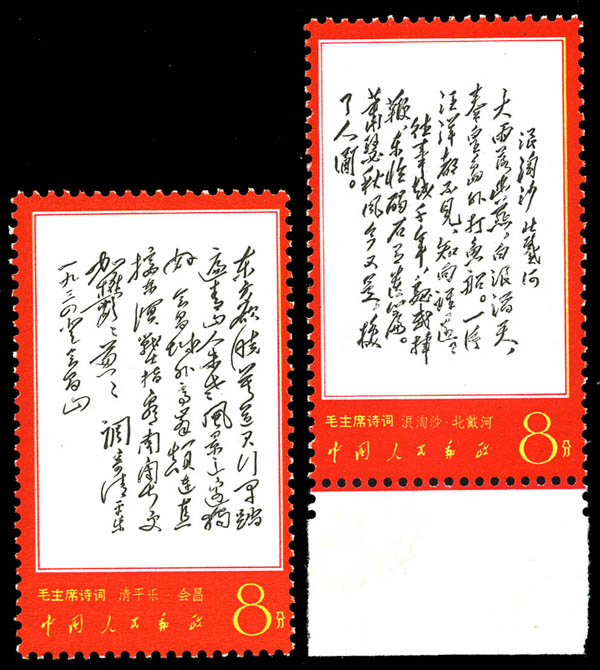 东方欲晓莫道君行早踏
遍青山人未老风景这边独
好 会昌城外高峰颠连直
接东溟战士指看南粤更
加郁々葱々 调寄清平乐
一九三四登会昌山
毛主席诗词 清平乐·会昌
中国人民邮政
8分
浪淘沙 北戴河
大雨落幽燕,白浪滔天,
秦皇岛外打鱼船。一片
汪洋都不见,知向谁边?
往事越千年,魏武挥
鞭,东临碣石有遗篇。
萧瑟秋风今又是,换
了人间。
毛主席诗词 浪淘沙·北戴河
中国人民邮政
8分